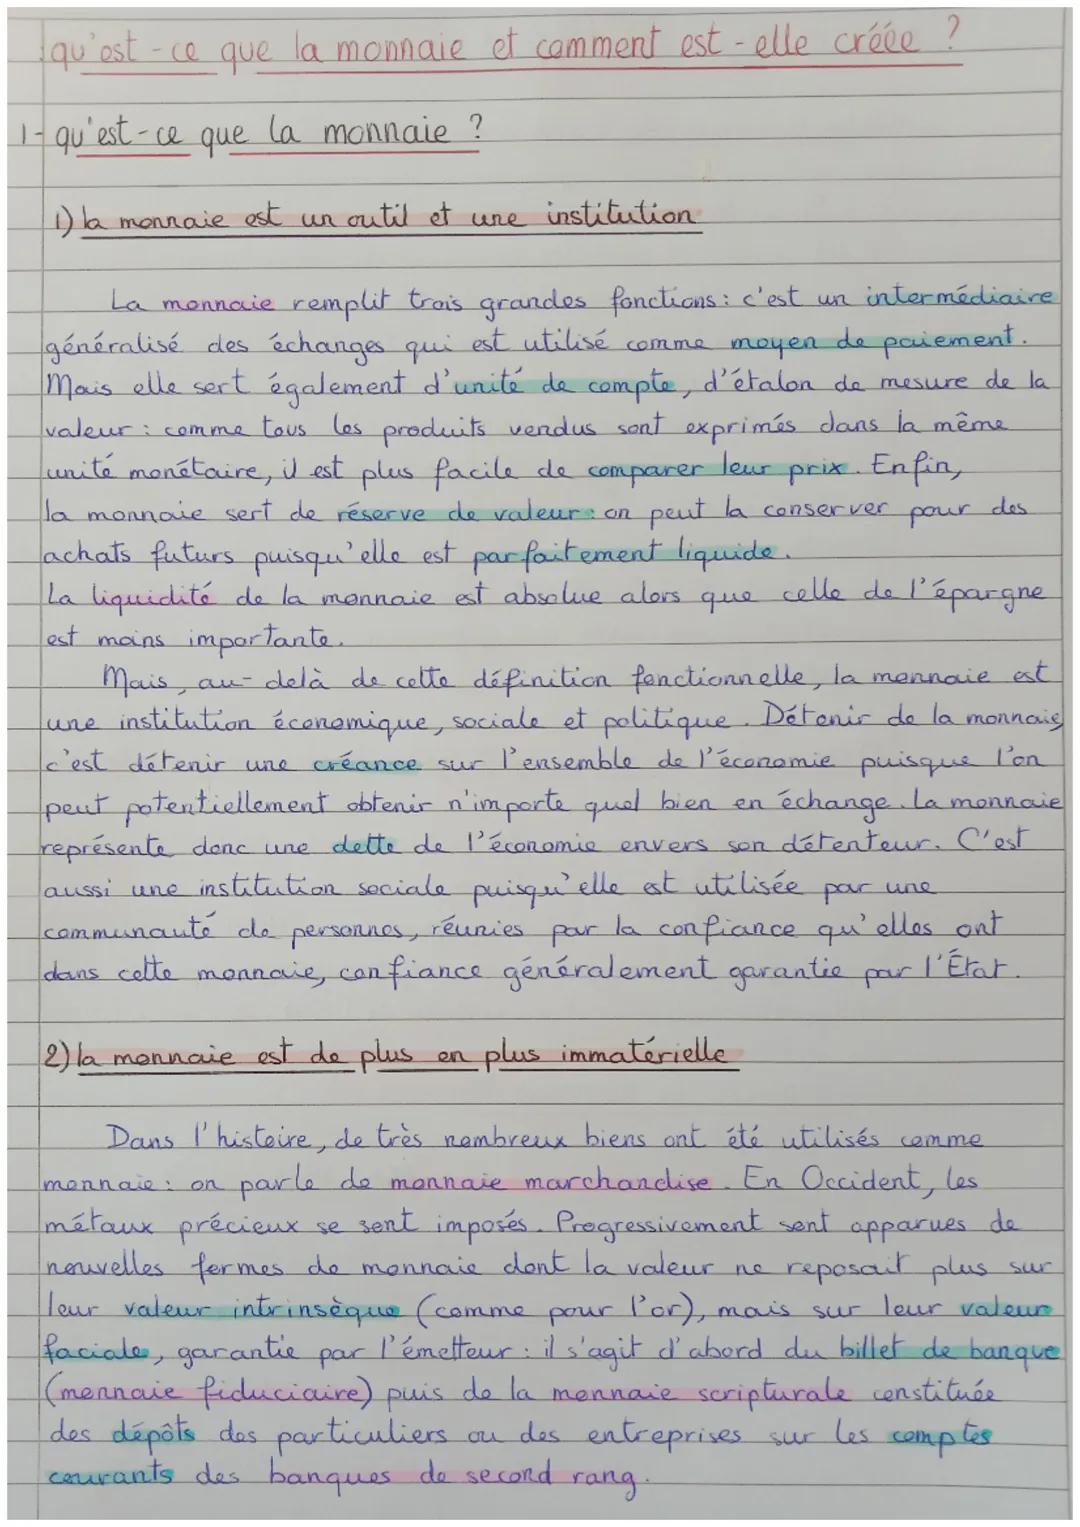 qu'est-ce que la monnaie et comment est-elle créée ?
1- qu'est-ce que la monnaie ?
1) la monnaie est un outil et une institution
La monnaie remplit trois grandes fonctions : c'est un intermédiaire
généralisé des échanges qui est utilisé comme moyen de paiement.
Mais elle sert également d'unité de compte, d'étalon de mesure de la
valeur : comme tous les produits vendus sont exprimés dans la même
unité monétaire, il est plus facile de comparer leur prix. Enfin,
la monnaie sert de réserve de valeur : on peut la conserver pour des
achats futurs puisqu'elle est parfaitement liquide.
La liquidité de la monnaie est absolue alors que celle de l'épargne
est moins importante.
Mais, au-delà de cette définition fonctionnelle, la monnaie est
une institution économique, sociale et politique. Détenir de la monnaie,
c'est détenir une créance sur l'ensemble de l'économie puisque l'on
peut potentiellement obtenir n'importe quel bien en échange. La monnaie
représente donc une dette de l'économie envers son détenteur. C'est
aussi une institution sociale puisqu'elle est utilisée par une
communauté de personnes, réunies par la confiance qu'elles ont
dans cette monnaie, confiance généralement garantie par l'État.
2) la monnaie est de plus en plus immatérielle
Dans l'histoire, de très nombreux biens ont été utilisés comme
monnaie : on parle de monnaie marchandise. En Occident, les
métaux précieux se sont imposés. Progressivement sont apparues de
nouvelles formes de monnaie dont la valeur ne reposait plus sur
leur valeur intrinsèque (comme pour l'or), mais sur leur valeur
faciale, garantie par l'émetteur : il s'agit d'abord du billet de banque
(monnaie fiduciaire) puis de la monnaie scripturale constituée
des dépôts des particuliers ou des entreprises sur les comptes
courants des banques de second rang.